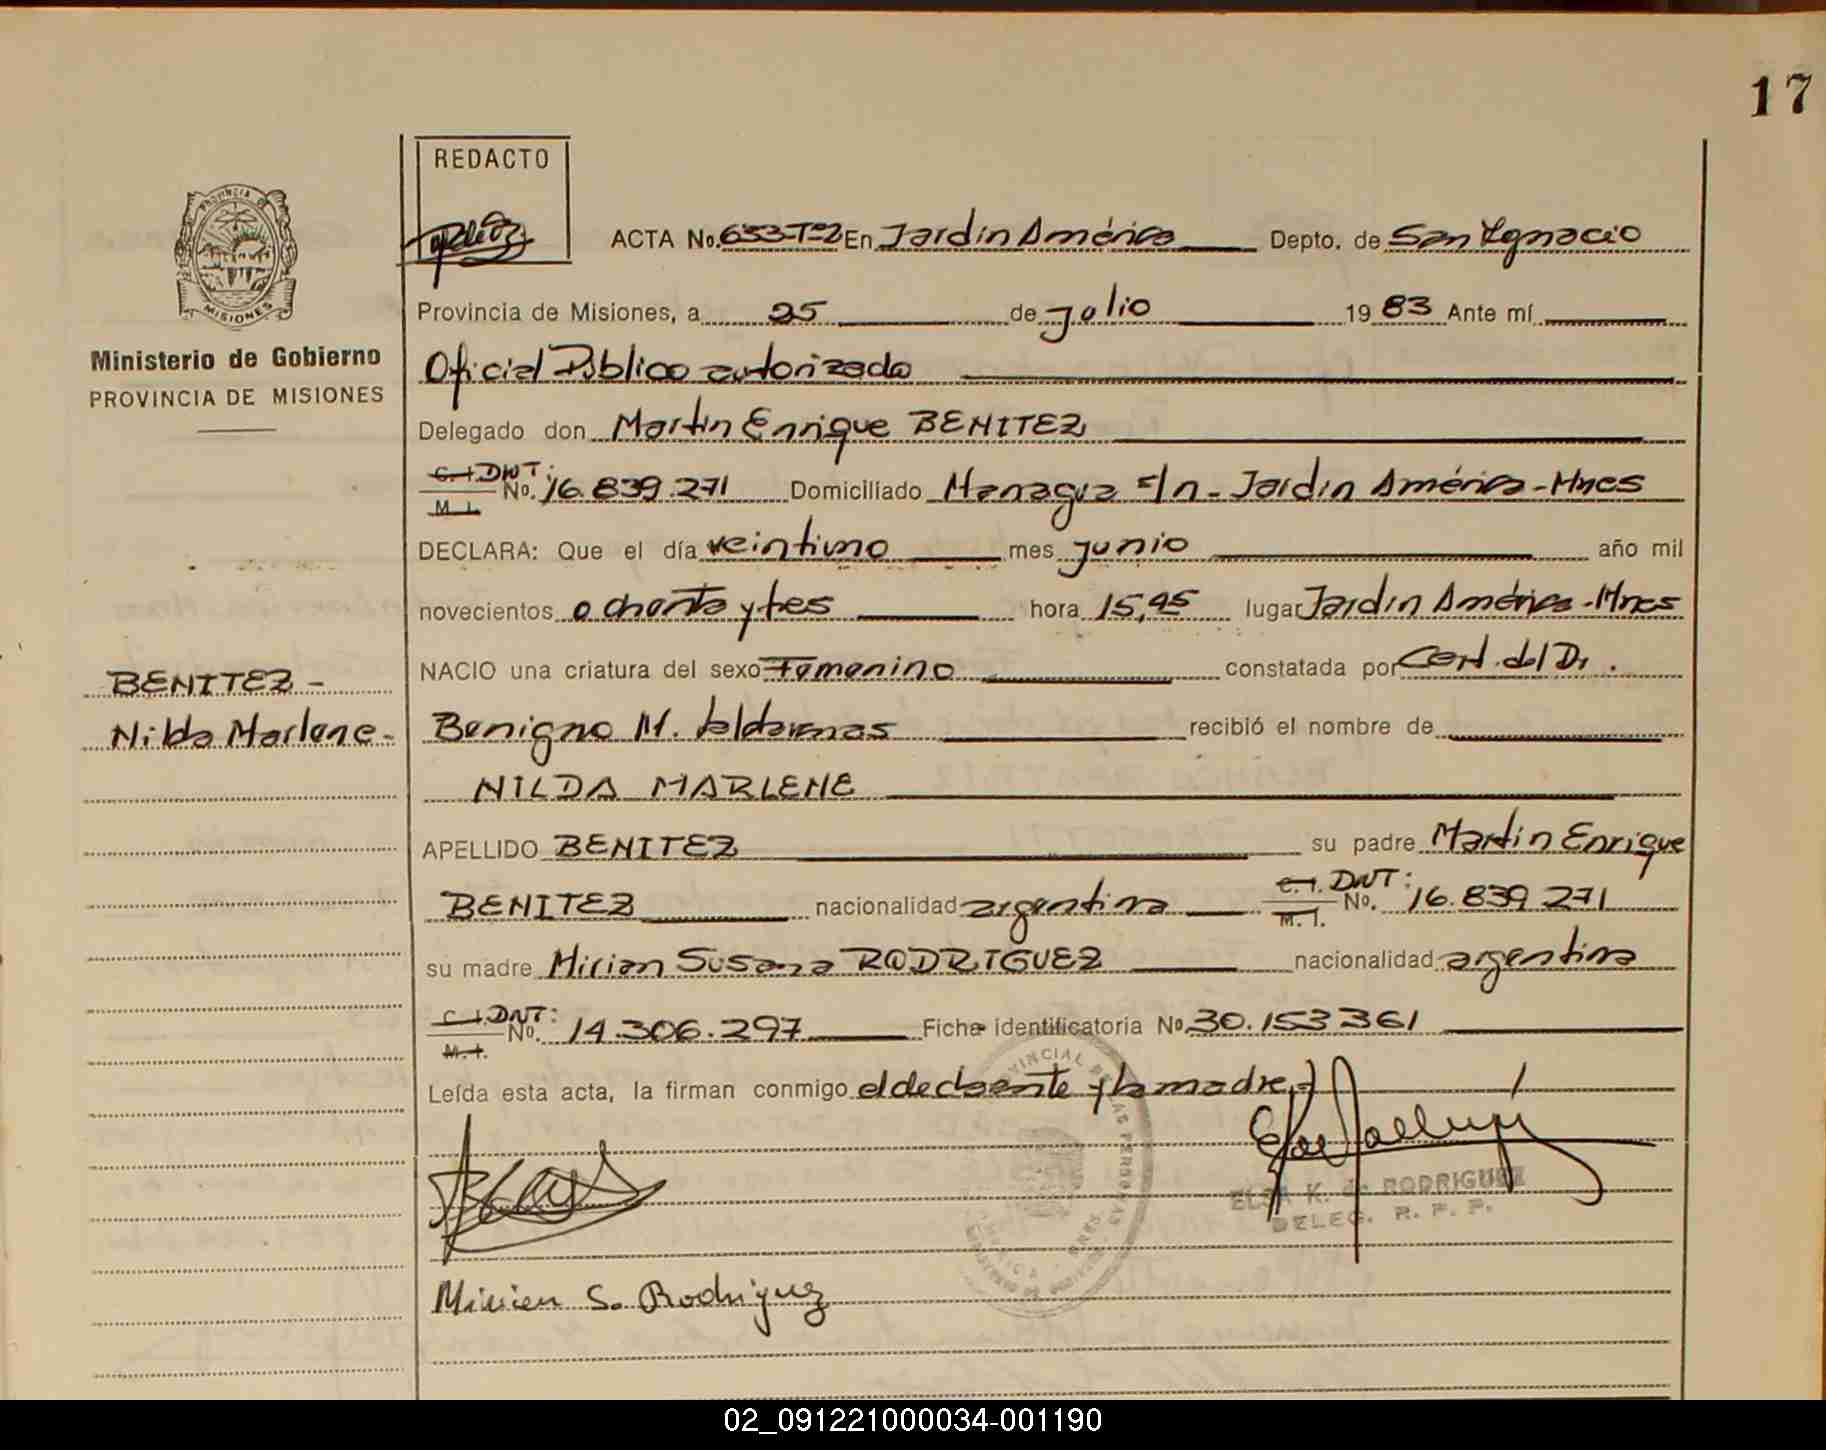 17
REDACTO
ACTA No. 653-T-2 En Jardín América Depto. de San Ignacio
PROVINCIA DE MISIONES
Provincia de Misiones, a 25 de julio 1983 Ante mí
Ministerio de Gobierno
PROVINCIA DE MISIONES
Oficial Público autorizado
Delegado don Martín Enrique BENITEZ
C.I. DNI: M.I. No. 16.839.271 Domiciliado Managua s/n - Jardín América - Mnes
DECLARA: Que el día veintiuno mes junio año mil
novecientos ochenta y tres hora 15,45 lugar Jardín América - Mnes
NACIO una criatura del sexo Femenino constatada por Cert. del Dr.
BENITEZ -
Nilda Marlene -
Benigno M. Valdovinos recibió el nombre de
NILDA MARLENE
APELLIDO BENITEZ su padre Martín Enrique
BENITEZ nacionalidad argentina C.I. DNI: M.I. No. 16.839.271
su madre Mirian Susana RODRIGUEZ nacionalidad argentina
C.I. DNI: M.I. No. 14.306.297 Ficha identificatoria No. 30.153.361
Leída esta acta, la firman conmigo el declarante y la madre.
ELSA K. de RODRIGUEZ
DELEG. R. P. P.
Mirian S. Rodriguez
02_091221000034-001190